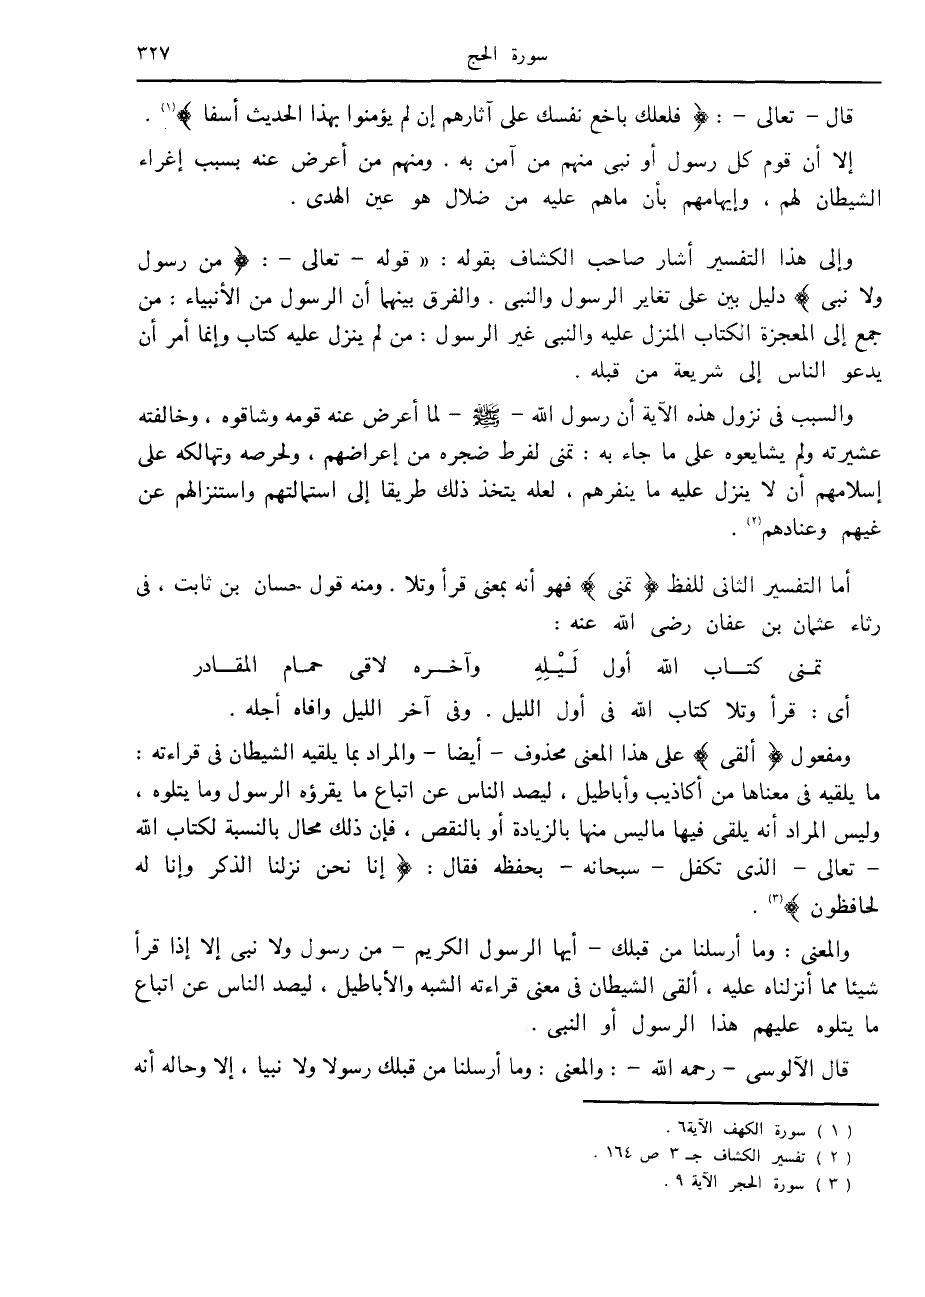 سورة الحج ٣٢٧
قال – تعالى – : ﴿ فلعلك باخع نفسك على آثارهم إن لم يؤمنوا بهذا الحديث أسفا ﴾(١) .
إلا أن قوم كل رسول أو نبى منهم من آمن به . ومنهم من أعرض عنه بسبب إغراء
الشيطان لهم ، وإيهامهم بأن ماهم عليه من ضلال هو عين الهدى .
وإلى هذا التفسير أشار صاحب الكشاف بقوله : « قوله – تعالى – : ﴿ من رسول
ولا نبى ﴾ دليل بين على تغاير الرسول والنبى . والفرق بينهما أن الرسول من الأنبياء : من
جمع إلى المعجزة الكتاب المنزل عليه والنبى غير الرسول : من لم ينزل عليه كتاب وإنما أمر أن
يدعو الناس إلى شريعة من قبله .
والسبب فى نزول هذه الآية أن رسول الله – ﷺ – لما أعرض عنه قومه وشاقوه ، وخالفته
عشيرته ولم يشايعوه على ما جاء به : تمنى لفرط ضجره من إعراضهم ، ولحرصه وتهالكه على
إسلامهم أن لا ينزل عليه ما ينفرهم ، لعله يتخذ ذلك طريقا إلى استمالتهم واستنزالهم عن
غيهم وعنادهم(٢) .
أما التفسير الثانى للفظ ﴿ تمنى ﴾ فهو أنه بمعنى قرأ وتلا . ومنه قول حسان بن ثابت ، فى
رثاء عثمان بن عفان رضى الله عنه :
تمنى كتاب الله أول لَيْلِهِ وآخره لاقى حمام المقادر
أى : قرأ وتلا كتاب الله فى أول الليل . وفى آخر الليل وافاه أجله .
ومفعول ﴿ ألقى ﴾ على هذا المعنى محذوف – أيضا – والمراد بما يلقيه الشيطان فى قراءته :
ما يلقيه فى معناها من أكاذيب وأباطيل ، ليصد الناس عن اتباع ما يقرؤه الرسول وما يتلوه ،
وليس المراد أنه يلقى فيها ماليس منها بالزيادة أو بالنقص ، فإن ذلك محال بالنسبة لكتاب الله
– تعالى – الذى تكفل – سبحانه – بحفظه فقال : ﴿ إنا نحن نزلنا الذكر وإنا له
لحافظون ﴾(٣) .
والمعنى : وما أرسلنا من قبلك – أيها الرسول الكريم – من رسول ولا نبى إلا إذا قرأ
شيئا مما أنزلناه عليه ، ألقى الشيطان فى معنى قراءته الشبه والأباطيل ، ليصد الناس عن اتباع
ما يتلوه عليهم هذا الرسول أو النبى .
قال الآلوسى – رحمه الله – : والمعنى : وما أرسلنا من قبلك رسولا ولا نبيا ، إلا وحاله أنه
( ١ ) سورة الكهف الآية٦ .
( ٢ ) تفسير الكشاف جـ ٣ ص ١٦٤ .
( ٣ ) سورة الحجر الآية ٩ .